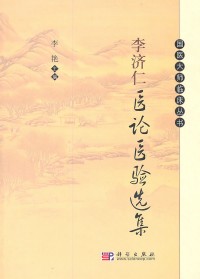 国医大师临床丛书
李济仁医论医验选集
李艳 主编
科学出版社
www.sciencep.com